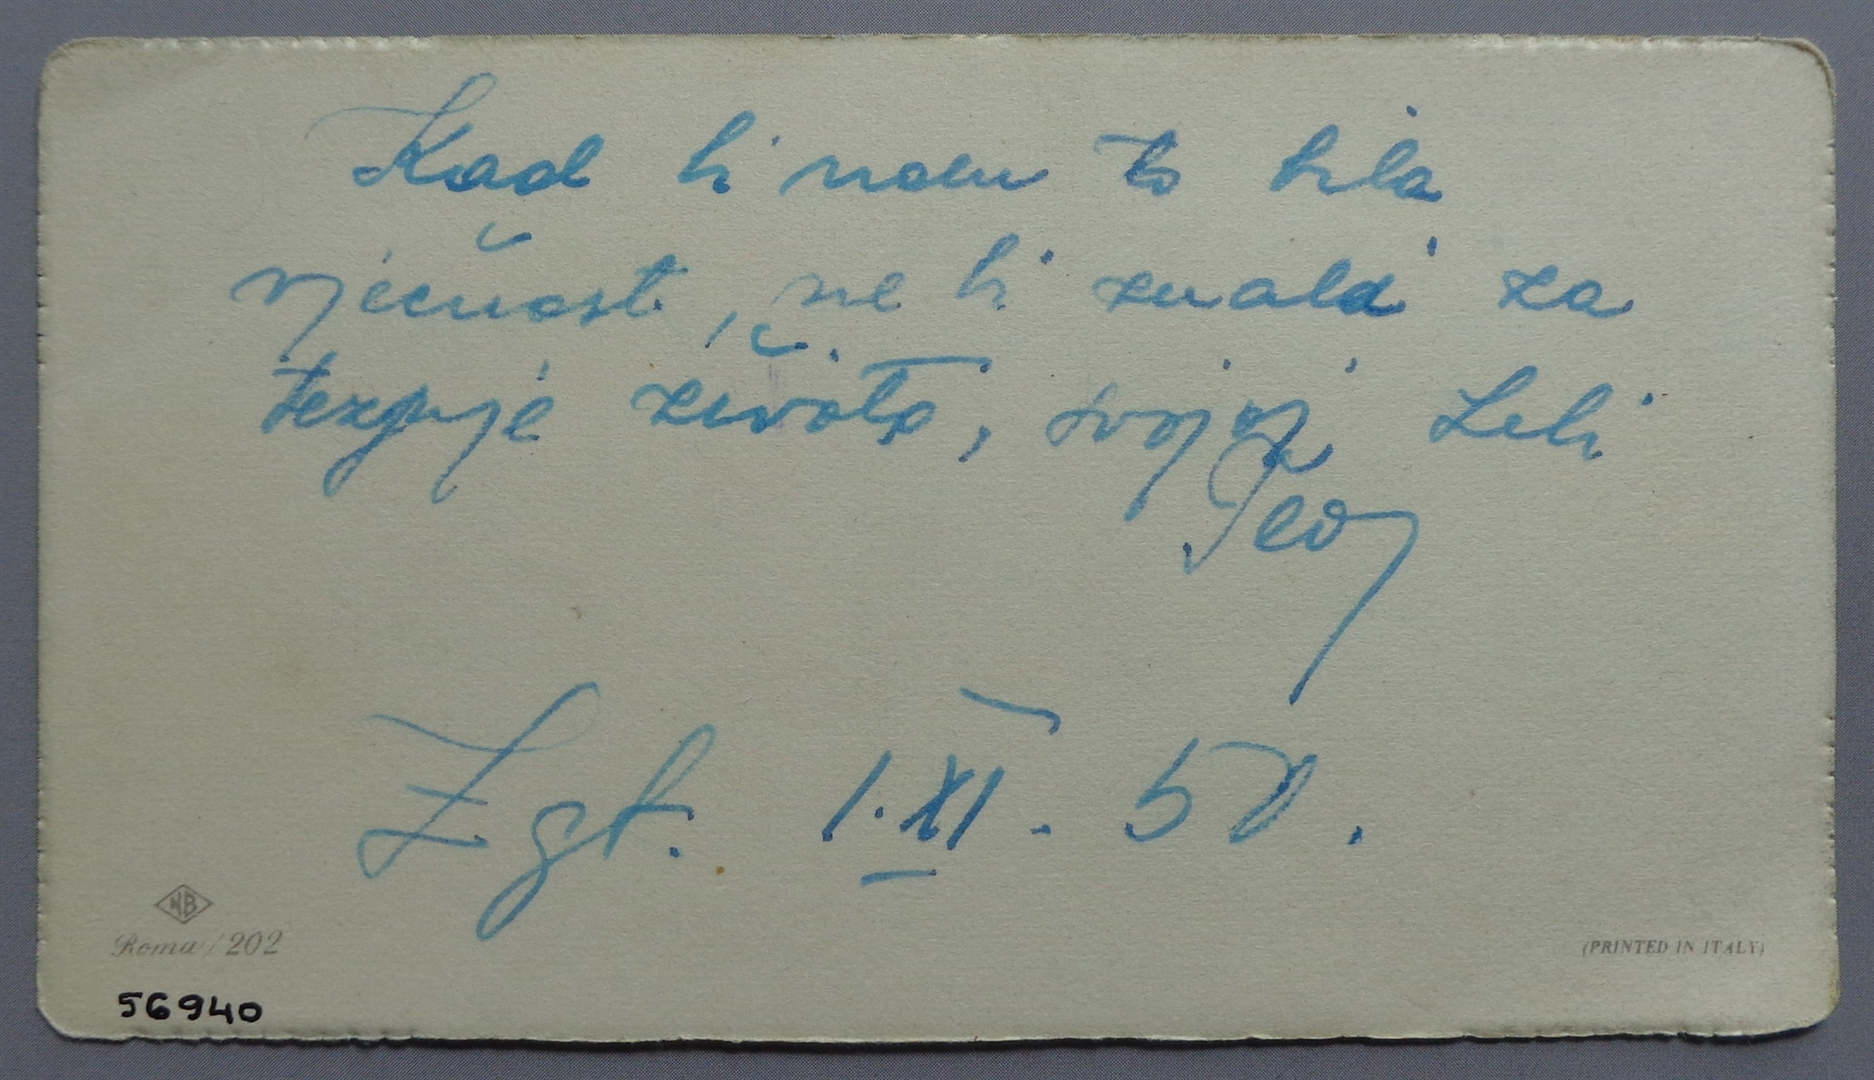 Kad bi nam to bila
vječnost, ne bi znala za
težnje života, svojoj Leli
Teo
Zgb. 1.XI. 50.
WB
Roma / 202
(PRINTED IN ITALY)
56940